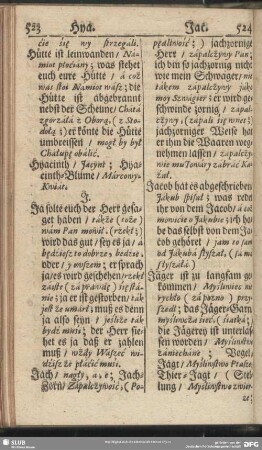 523 Hya. Jac. 524
cie się wy strzegali.
Hütte ist leinwanden / Na-
miot płocienny; was stehet
euch eure Hütte / á coż
was stoi Namiot wász; die
Hütte ist abgebrannt
nebst der Scheune / Cháta
zgorzáłá z Oborą, ( z Sto-
dołą ;) er könte die Hütte
umbreissen / mogł by być
Cháłupę obálić.
Hyacinth / Jacynt; Hya-
cinth-Blume / Márcowy-
Kwiat.
J.
Ja solte euch der Herr gesa-
get haben / także (toże)
wam Pan mowił. (rzekł;)
wird das gut / sey es ja / á
będzieß to dobrze; bedzie,
oder / y owszem; er sprach
ja / es wird geschehen / rzekł
záiste (zápráwdę) się stá-
nie; ja er ist gestorben / ták
jest że umárł; muß es denn
ja also seyn / jeśliże ták
być musi; der Herr sie-
het es ja daß er zahlen
muß / wżdy Wászeć wi-
dzisz że płácić musi.
Jach / nagły, a, e; Jach-
Zorn / Zapálczywość, (Po-
pędliwość;) jachzornige
Herr / zápálczywy Pan;
ich bin so jachzornig nicht
wie mein Schwager / nie
tákem zapálczywy jáko
moy Szwágier; er wird ge-
schwinde zornig / zapal-
czywy (zapali się wnet;
jachzorniger Weise hat
er ihm die Waaren weg-
nehmen lassen / zapálczy-
wie mu Towáry zábráć Ká-
zał.
Jacob hat es abgeschrieben
Jakub spisał; was redt
ihr von dem Jacob / á co
mowicie o Jakubie; ich ha-
be das selbst von dem Ja-
cob gehöret / jam to sam
od Jákubá słyszał, (já to
słyszáłá.)
Jäger ist zu langsam ge-
kommen / Myśliwiec nie
rychło (zá pozno) przy-
szedł; das Jäger-Garn
myśliwcza sieć. (siatká;
die Jägerey ist unterlas-
sen worden / Myślistwo
zániecháne; Vogel-
Jagt / Myślistwo Ptásze
Thier-Jagt / (Stel-
lung / Myślistwo zwie-
rz